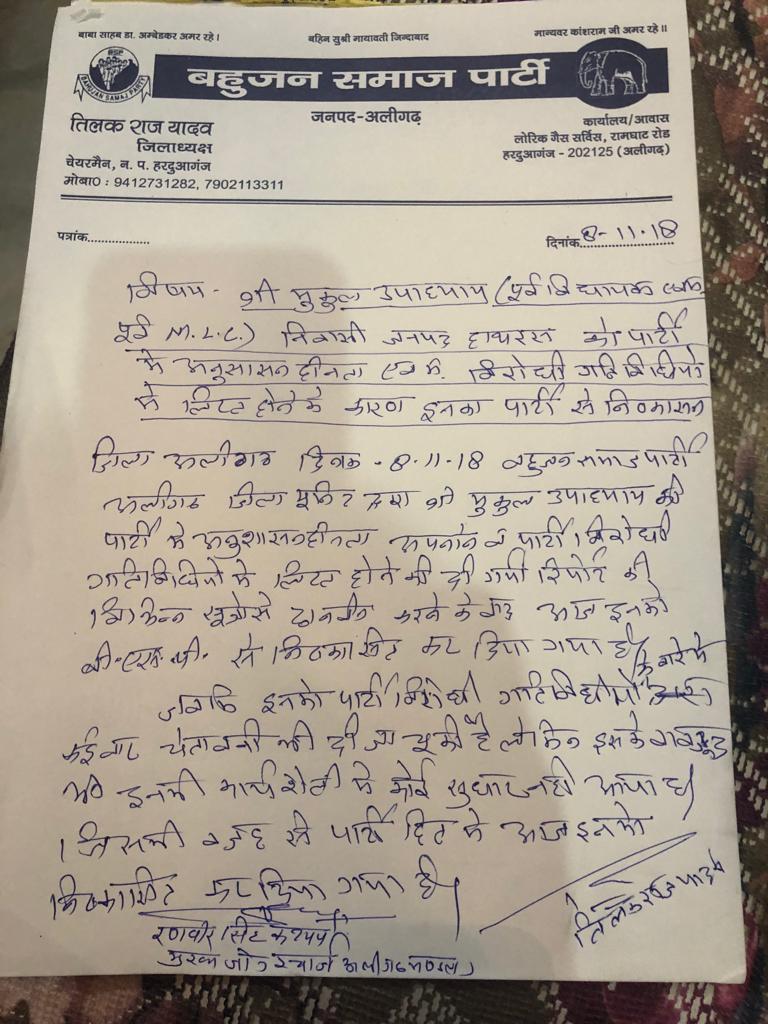 बाबा साहब डा. अम्बेडकर अमर रहे।
बहिन सुश्री मायावती जिन्दाबाद
मान्यवर कांशराम जी अमर रहे॥
BSP
BAHUJAN SAMAJ PARTY
बहुजन समाज पार्टी
जनपद-अलीगढ़
तिलक राज यादव
जिलाध्यक्ष
चेयरमैन, न. प. हरदुआगंज
मोबा० : 9412731282, 7902113311
कार्यालय/आवास
लोरिक गैस सर्विस, रामघाट रोड
हरदुआगंज - 202125 (अलीगढ़)
पत्रांक....................
दिनांक 8-11-18
विषय - श्री मुकुल उपाध्याय (पूर्व विधायक एवं
पूर्व M.L.C.) निवासी जनपद हाथरस को पार्टी
मे अनुसासनहीनता एवम विरोधी गतिविधियो
मे लिप्त होने के कारण इनका पार्टी से निष्कासन
जिला अलीगढ दिनांक - 8-11-18 बहुजन समाज पार्टी
अलीगढ जिला यूनिट द्वारा श्री मुकुल उपाध्याय की
पार्टी मे अनुशासनहीनता अपनाने व पार्टी विरोधी
गतिविधियो मे लिप्त होने की दी गयी रिपोर्ट की
विभिन्न सूत्रो से छानबीन करने के बाद आज इनको
बी.एस.पी. से निष्कासित कर दिया गया है।
जबकि इनको पार्टी विरोधी गतिविधियो के बारे मे
कई बार चेतावनी भी दी जा चुकी है लेकिन इसके बावजूद
भी इनकी कार्यशैली मे कोई सुधार नही आया है।
जिसकी वजह से पार्टी हित मे आज इनको
निष्कासित कर दिया गया है।
रणवीर सिंह कश्यप
मुख्य जोन इंचार्ज अलीगढ मण्डल
तिलकराज यादव